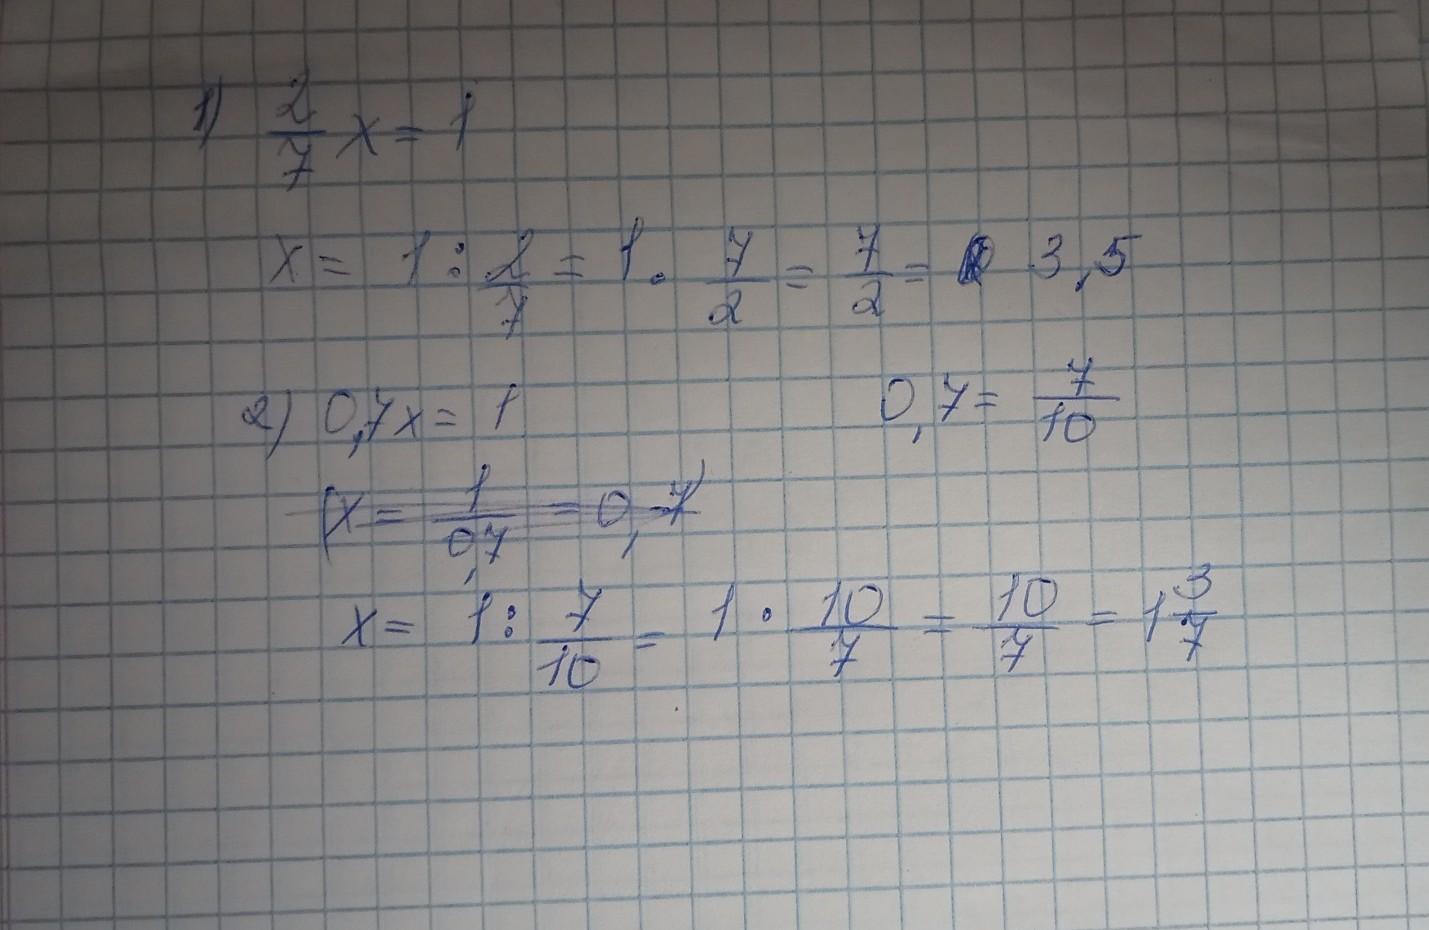 1) 2/7 x = 1
x = 1 : 2/7 = 1 · 7/2 = 7/2 = 3,5
2) 0,7x = 1 0,7 = 7/10
(x = 1/0,7 = 0,7)
x = 1 : 7/10 = 1 · 10/7 = 10/7 = 1 3/7